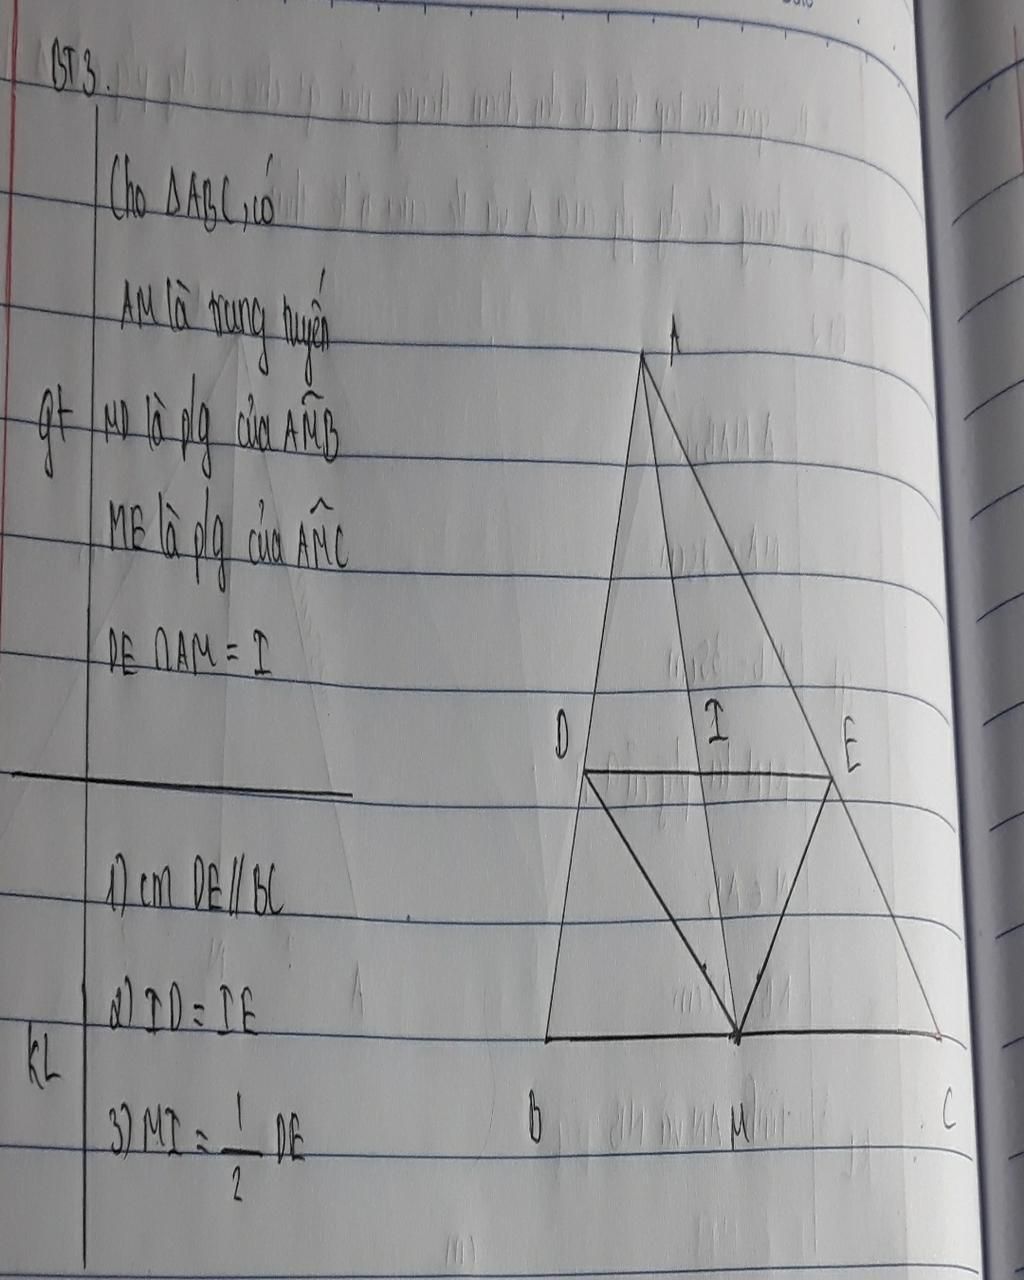 BT3.
Cho ΔABC, có
AM là trung tuyến
gt MD là p/g của AM̂B
ME là p/g của AM̂C
DE ∩ AM = I
1) cm DE // BC
2) ID = IE
KL
3) MI = 1/2 DE
A
D I E
B M C